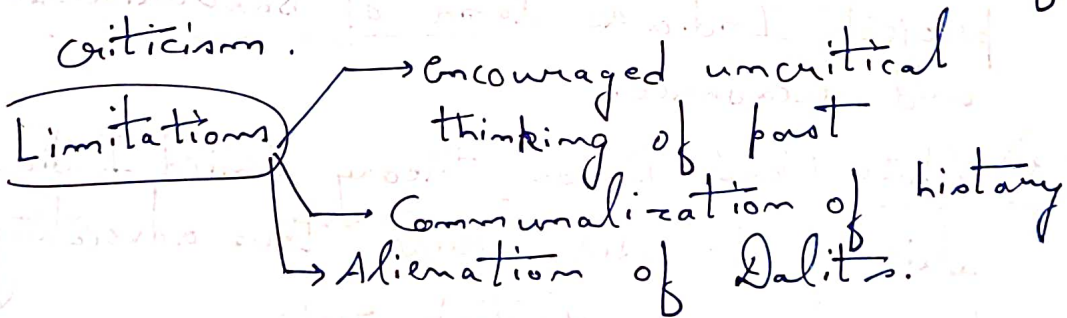 criticism.
Limitations
→ encouraged uncritical
thinking of past
→ Communalization of history
→ Alienation of Dalits.